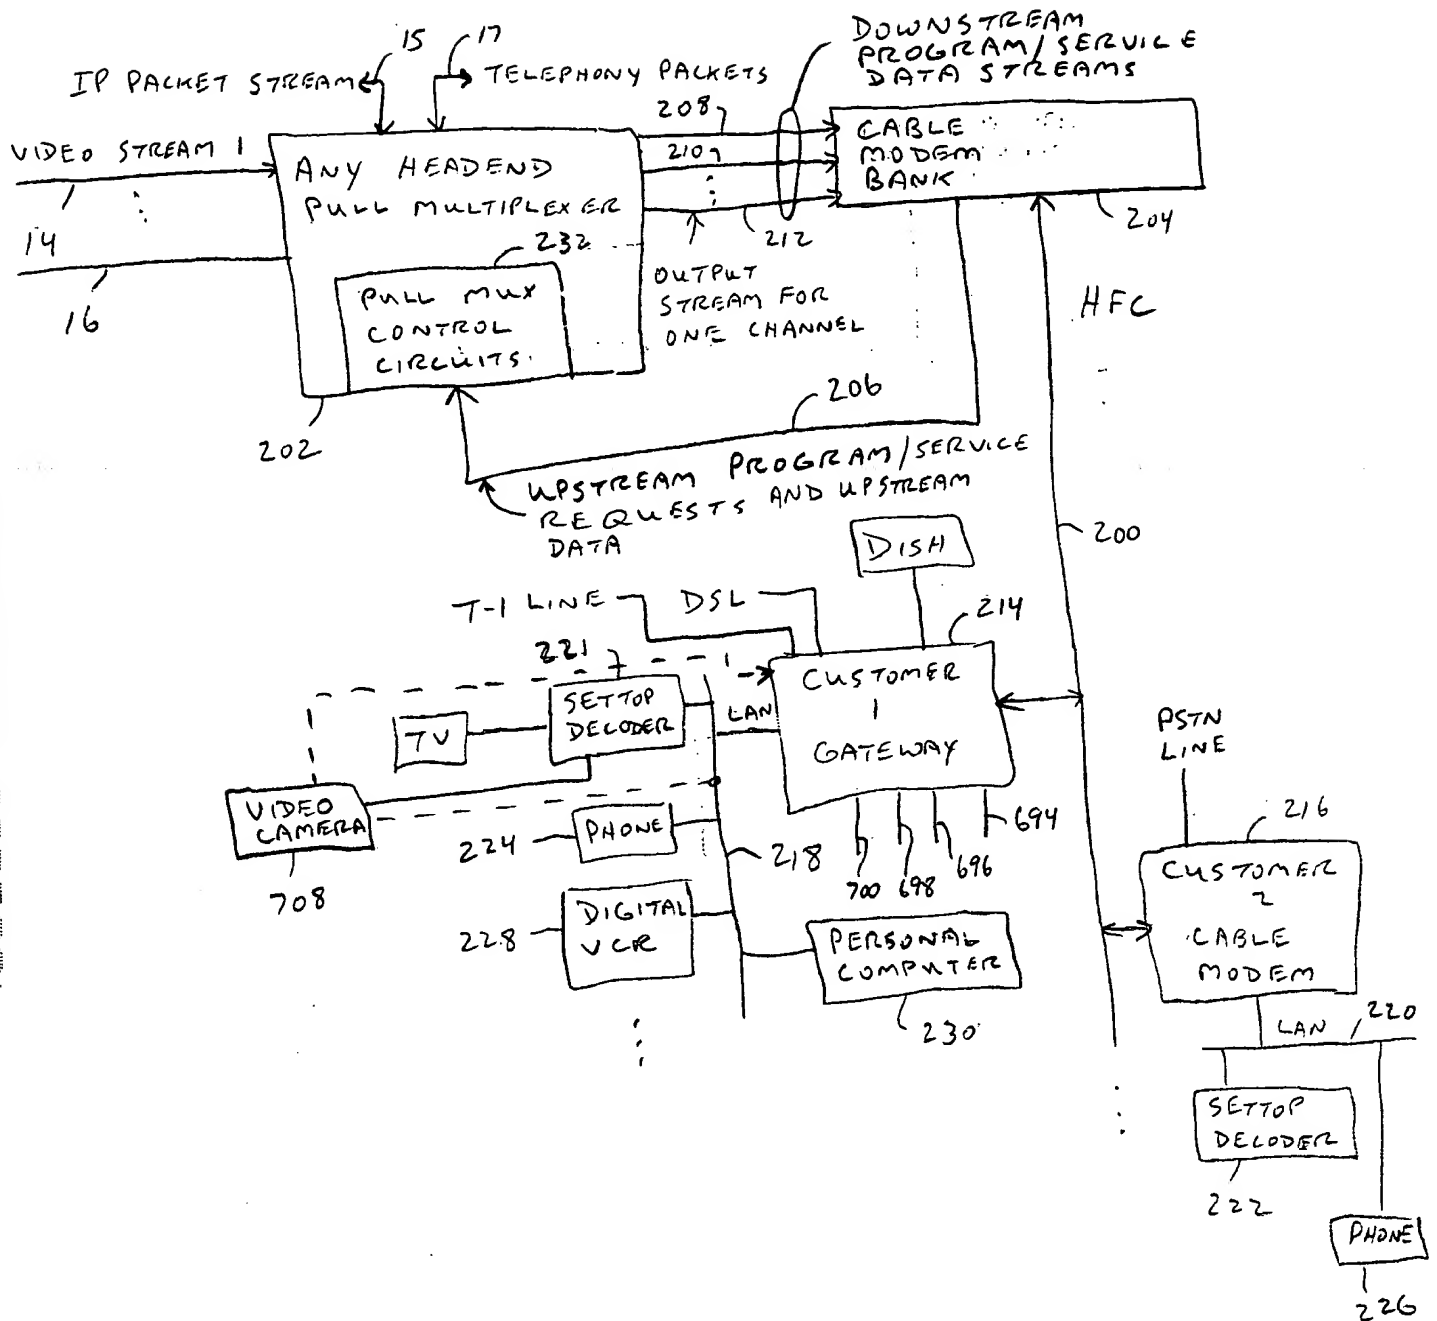 15
17
IP PACKET STREAM
TELEPHONY PACKETS
DOWNSTREAM
PROGRAM/SERVICE
DATA STREAMS
VIDEO STREAM 1
14
16
ANY HEADEND
PULL MULTIPLEXER
232
PULL MUX
CONTROL
CIRCUITS.
202
208
210
212
OUTPUT
STREAM FOR
ONE CHANNEL
CABLE
MODEM
BANK
204
HFC
206
UPSTREAM PROGRAM/SERVICE
REQUESTS AND UPSTREAM
DATA
200
DISH
T-1 LINE
DSL
214
221
SETTOP
DECODER
TV
LAN
CUSTOMER
1
GATEWAY
VIDEO
CAMERA
708
224
PHONE
218
700
698
696
694
228
DIGITAL
VCR
PERSONAL
COMPUTER
230
PSTN
LINE
216
CUSTOMER
2
CABLE
MODEM
LAN
220
SETTOP
DECODER
222
PHONE
226